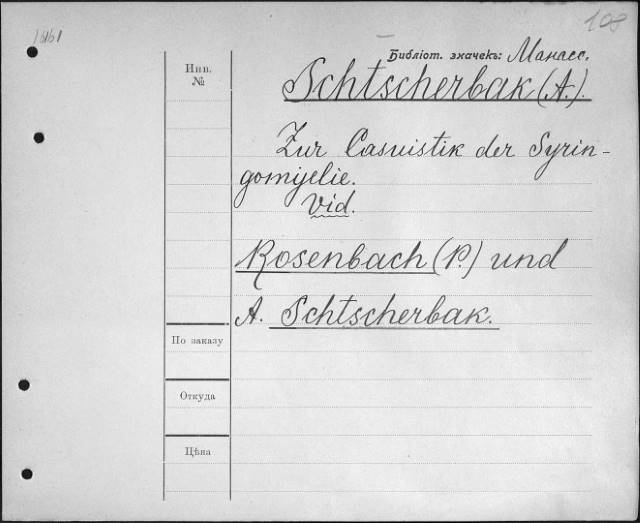 16161
108
Библіот. значекъ: Манасс.
Инв.
№
Schtscherbak (A.).
Zur Casuistik der Syrin-
gomyelie.
Vid.
Rosenbach (P.) und
A. Schtscherbak.
По заказу
Откуда
Цѣна